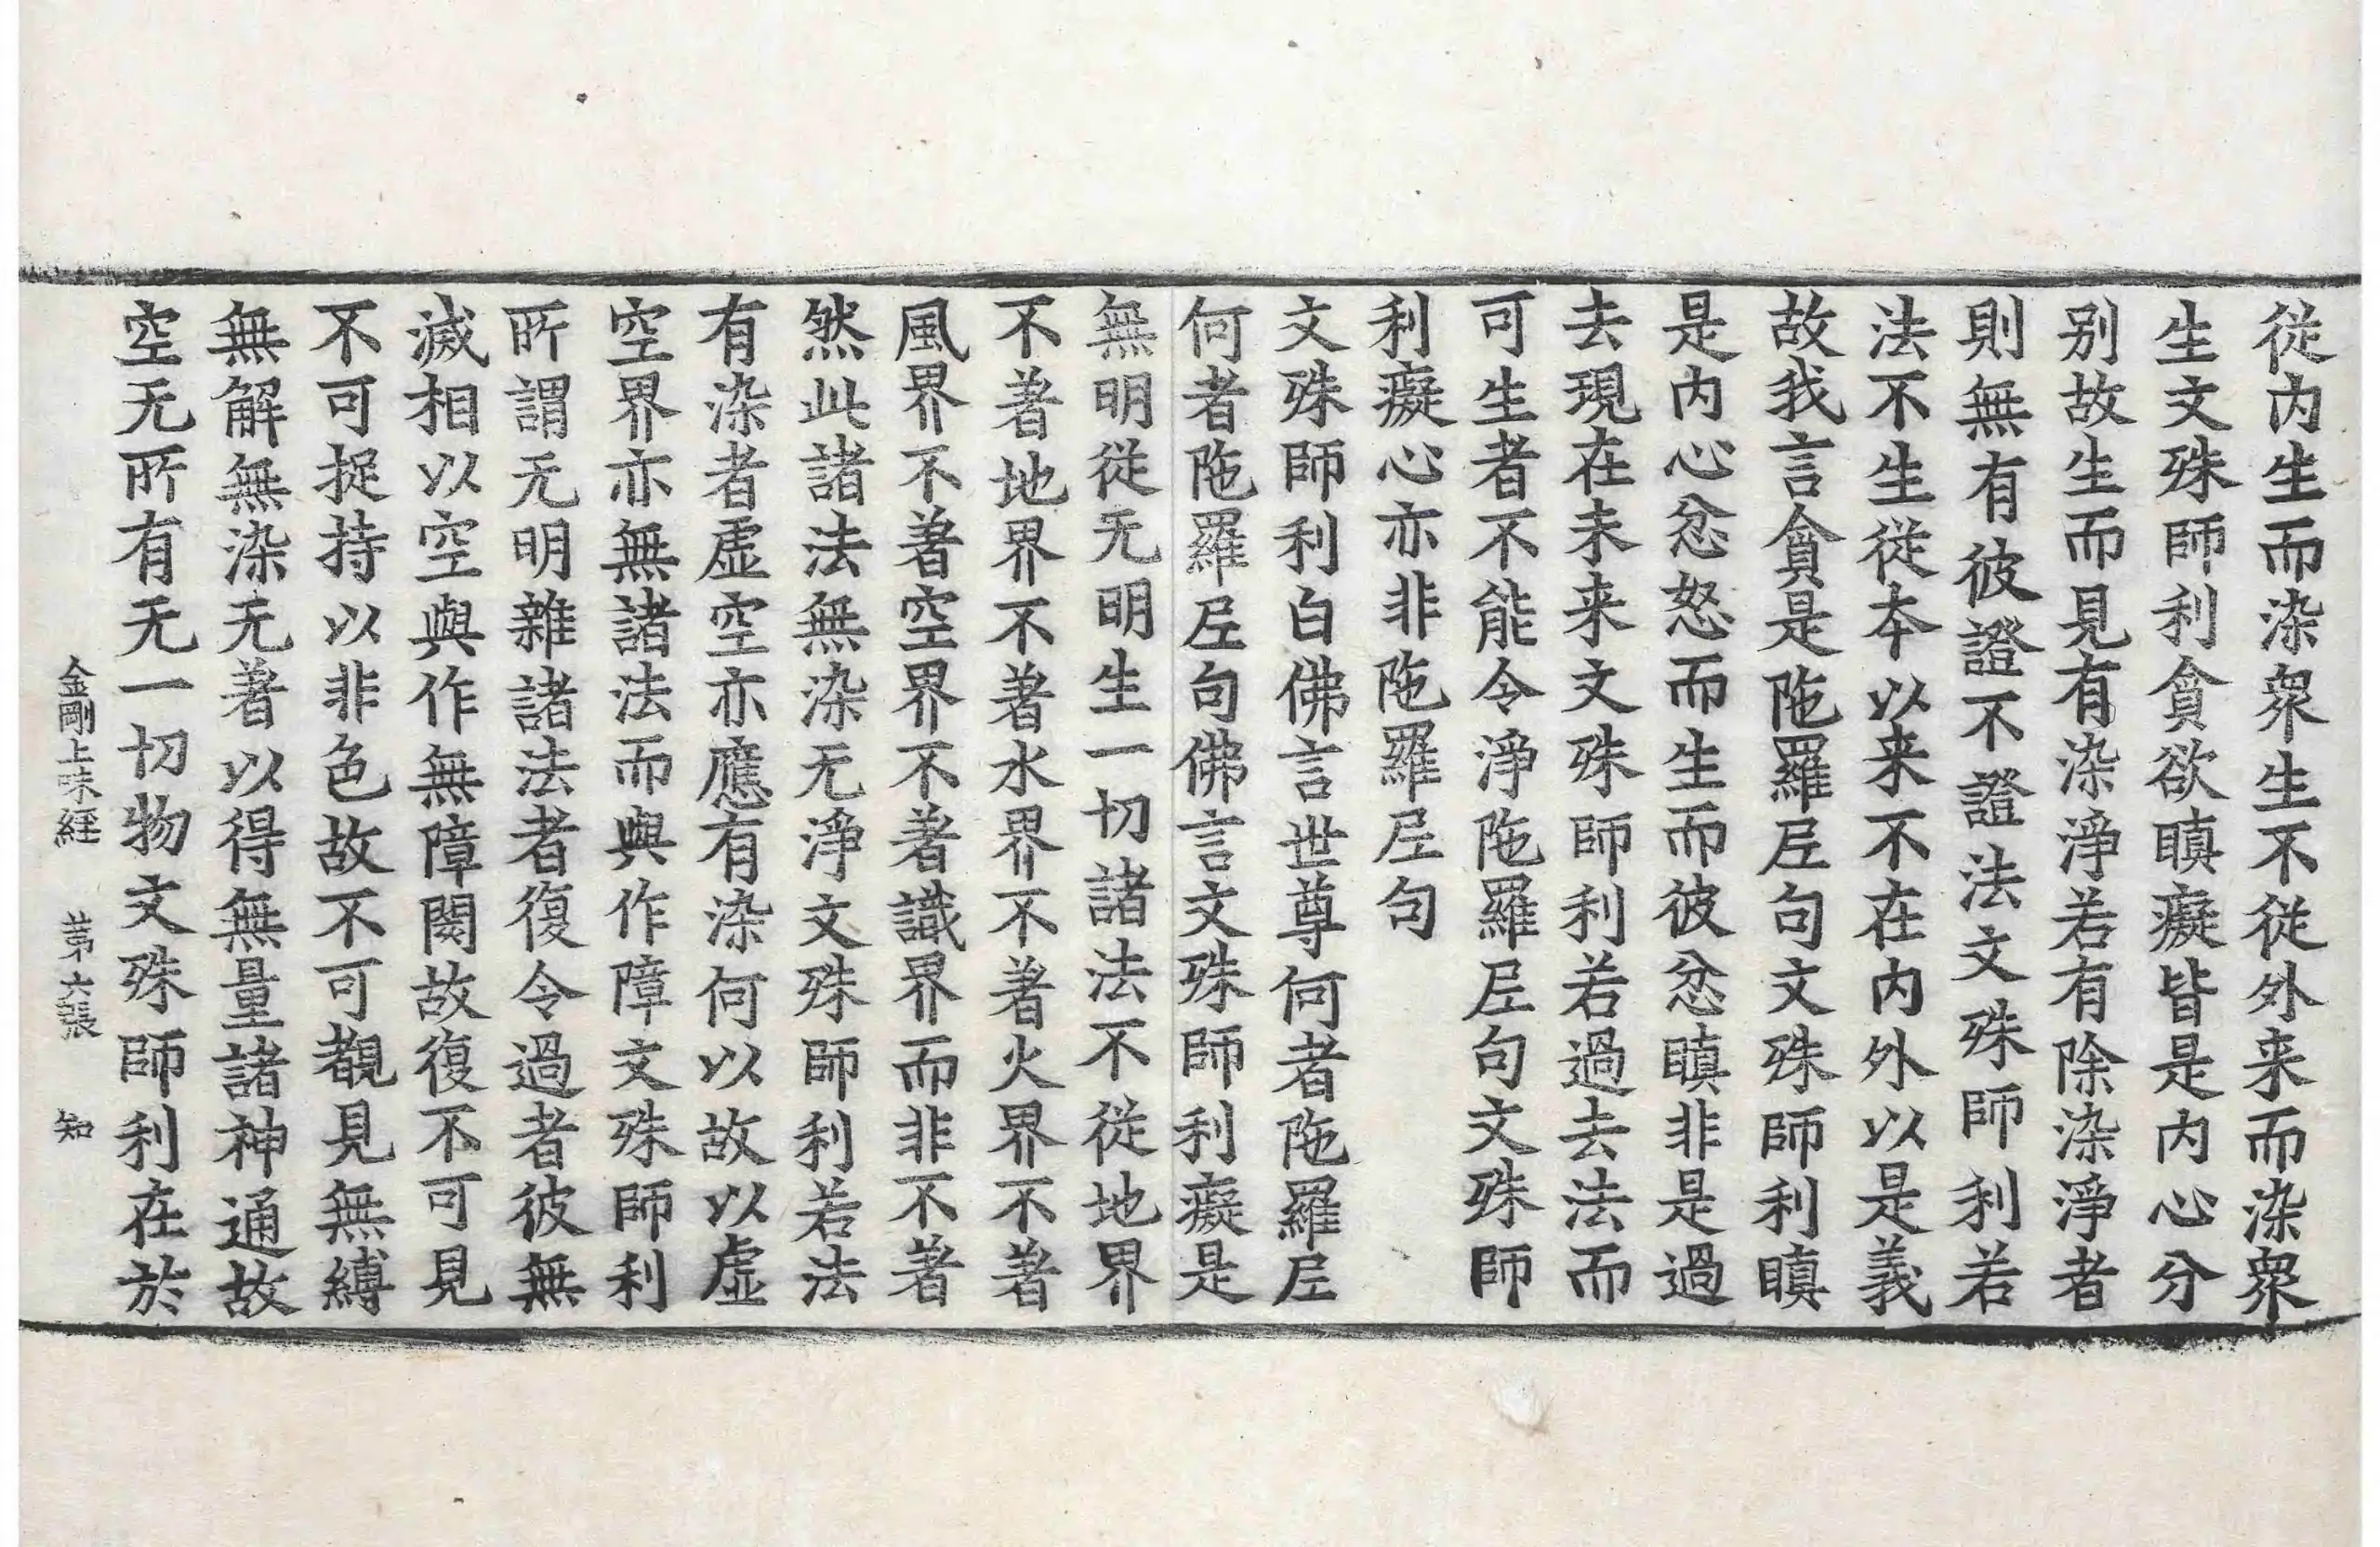 從内生而染衆生不從外来而染衆
生文殊師利貪欲瞋癡皆是内心分
别故生而見有染淨若有除染淨者
則無有彼證不證法文殊師利若
法不生從夲以来不在内外以是義
故我言貪是陁羅𡰱句文殊師利瞋
是内心忿怒而生而彼忿瞋非是過
去現在未来文殊師利若過去法而
可生者不能令淨陁羅𡰱句文殊師
利癡心亦非陁羅𡰱句
文殊師利白佛言世尊何者陁羅𡰱
何者陁羅𡰱句佛言文殊師利癡是
無明從无明生一切諸法不從地界
不著地界不著水界不著火界不著
風界不著空界不著識界而非不著
然此諸法無染无淨文殊師利若法
有染者虚空亦應有染何以故以虚
空界亦無諸法而與作障文殊師利
所謂无明雜諸法者復令過者彼無
滅相以空與作無障閡故復不可見
不可捉持以非色故不可觀見無縛
無解無染无著以得無量諸神通故
空无所有无一切物文殊師利在於
金剛上味経 苐六張 知